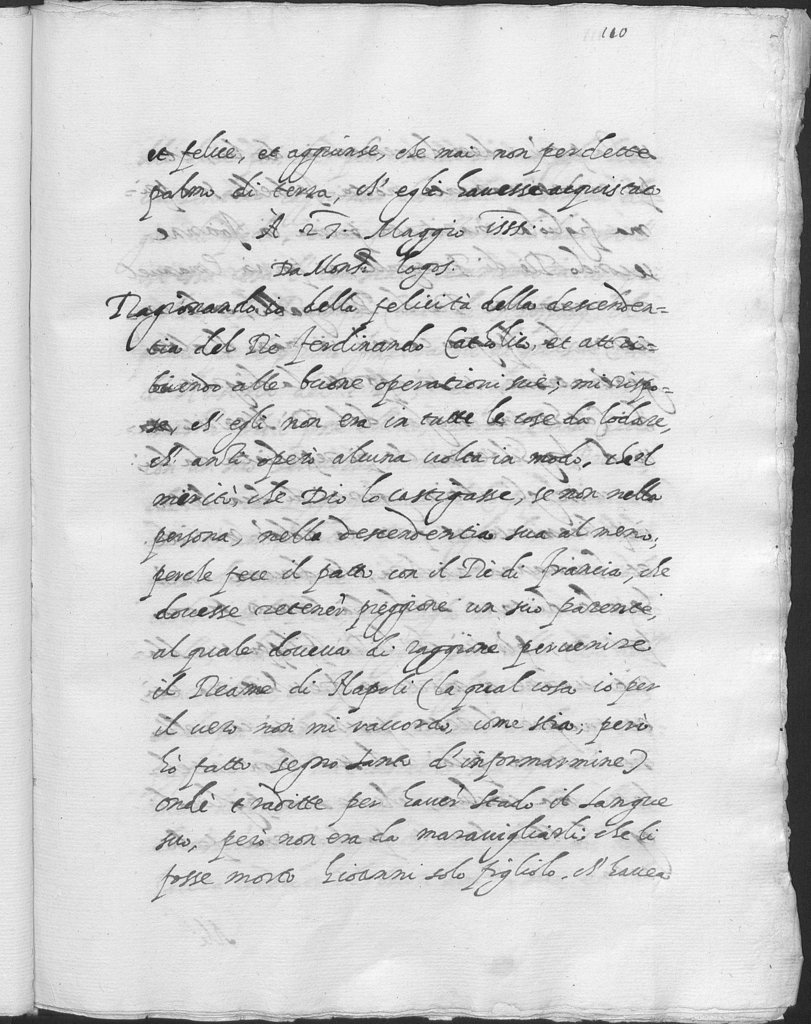 110
et felice, et aggiunse, che mai non perdette
palmo di terra, ch' egli havesse acquistato
À 27. Maggio 1555.
Da Monsr
Ragionando io della felicità della descenden-
tia del Rè Ferdinando Catolico, et attri-
buendo alle buone operationi sue; mi rispo-
se, ch' egli non era in tutte le cose da lodare,
ch' anzi operò alcuna volta in modo, che'l
meritò, che Dio lo castigasse, se non nella
persona, nella descendentia sua al meno;
perche fece il patto con il Rè di Francia, che
dovesse retener priggione un suo parente,
al quale doveva di raggione pervenire
il Reame di Napoli (la qual cosa io per
il vero non mi raccordo, come stia; però
hò fatto segno d'informarmine)
onde tradítte per haver il sangue
suo, però non era da maravigliarsi, che li
fosse morto Giovanni solo figliolo, ch' havea